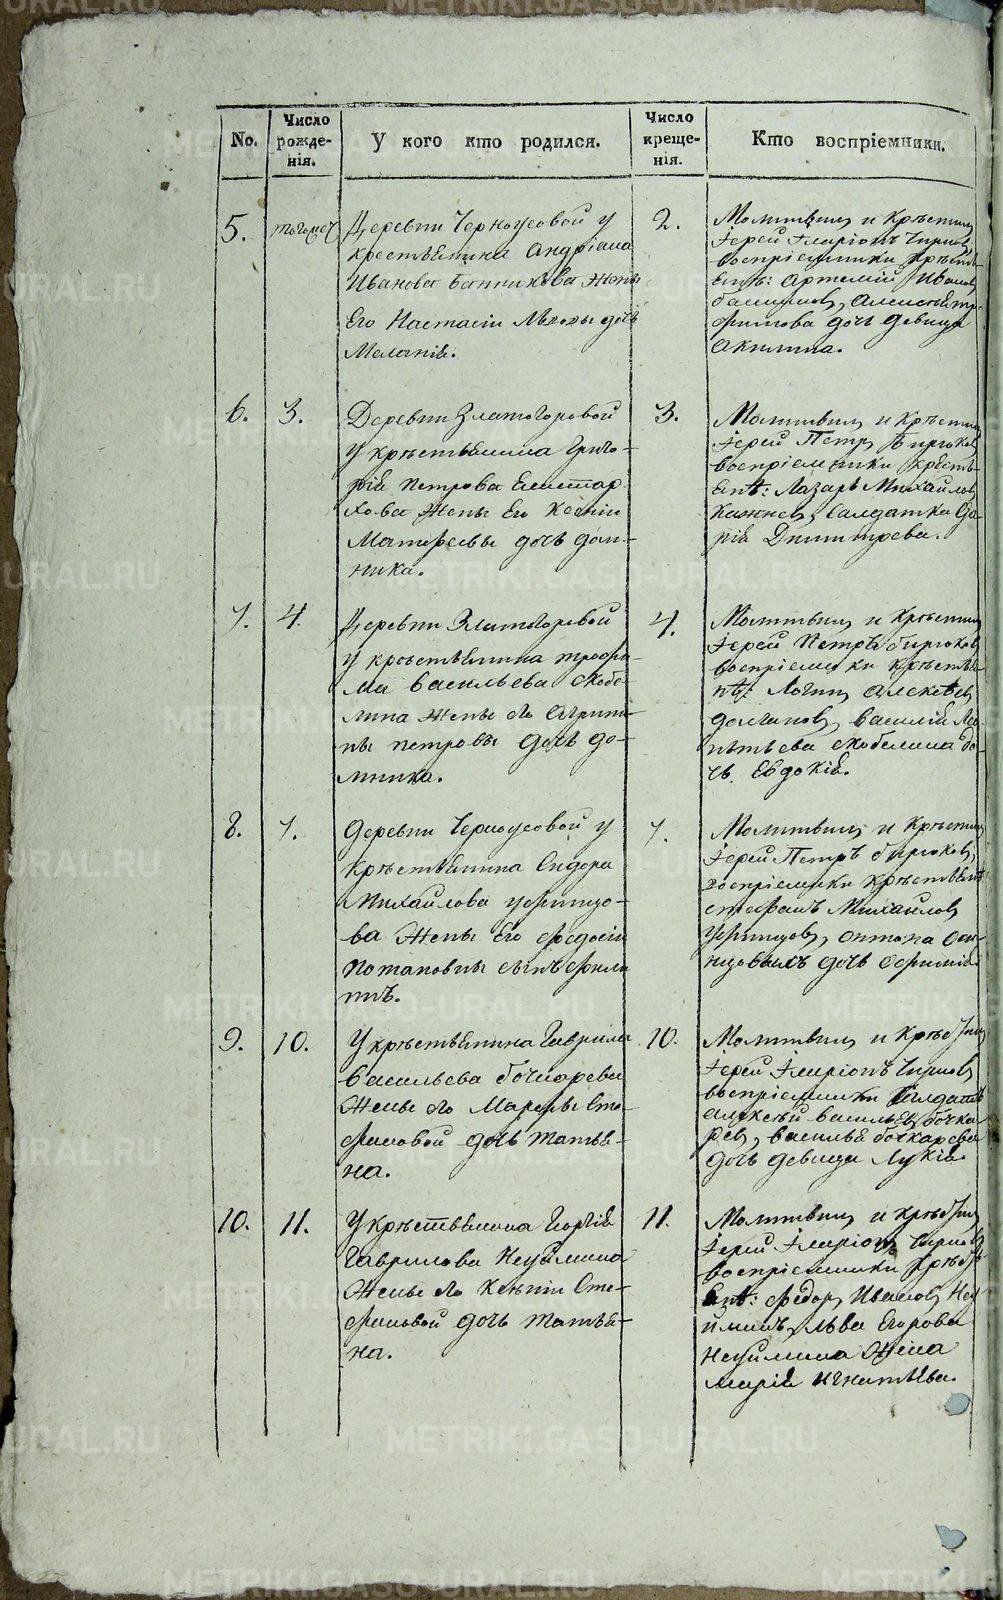 No.
Число рожденія.
У кого кто родился.
Число крещенія.
Кто воспріемники.
5.
Деревни Черноусовой у
крестьянина Андріана
Иванова жены
Его Настасіи дочь
Меланія.
2.
Молитвилъ и Крѣстилъ
Іерей Иларіонъ
воспріемники крѣстья
Енѣ: Артемій Ивановъ
дочь девица
Акилина.
6.
3.
Деревни Златогоровой
У крѣстьянина Григо-
рія Петрова
хова жены Его Ксеніи
Матфеевы дочь Дом-
ника.
3.
Молитвилъ и Крѣстилъ
Іерей Петръ Бирюковъ
воспріемники крѣсть
Енѣ: Лазарь Михайловъ
Салдатка Да
рія Дмитрева.
7.
4.
Деревни Златогоровой
у крѣстьянина Трофи-
ма Васильева Скобе-
лина жены Его Агрипи-
ны Петровы дочь До-
мника.
4.
Молитвилъ и Крѣстилъ
Іерей Петръ Бирюковъ
воспріемники крѣстья
нѣ: Логинъ Алексѣевъ
Долгановъ, Василій
Скобелина до-
чь Евдокія.
8.
7.
Деревни Черноусовой у
Крѣстьянина Сидора
Михайлова Уфинцо-
ва жены Его Федосіи
Потаповны сынъ Фили
ппъ.
7.
Молитвилъ и Крѣстилъ
Іерей Петръ Бирюковъ,
воспріемники крѣстьянѣ
Стефанъ Михайловъ
Уфинцовъ, Антона
дочь Ефимія
9.
10.
У крѣстьянина Гаврила
Васильева Бочкарева
жены Его Марфы Сте-
фановой дочь Татья-
на.
10.
Молитвилъ и Крѣстилъ
Іерей Иларіонъ
воспріемники Салдатъ
Алексѣй Васильевъ Бочка
ревъ, Василья Бочкарева
дочь девица Лукія.
10.
11.
У крѣстьянина Георгія
Гаврилова Неуймина
жены Его Ксеніи Сте-
фановой дочь Татья-
на.
11.
Молитвилъ и Крѣстилъ
Іерей Иларіонъ
воспріемники Крѣстья
Енѣ: Федоръ Ивановъ Неу
йминъ, Льва Егорова
Неуймина жена
Марія Игнатьева.
METRIKI.GASO-URAL.RU